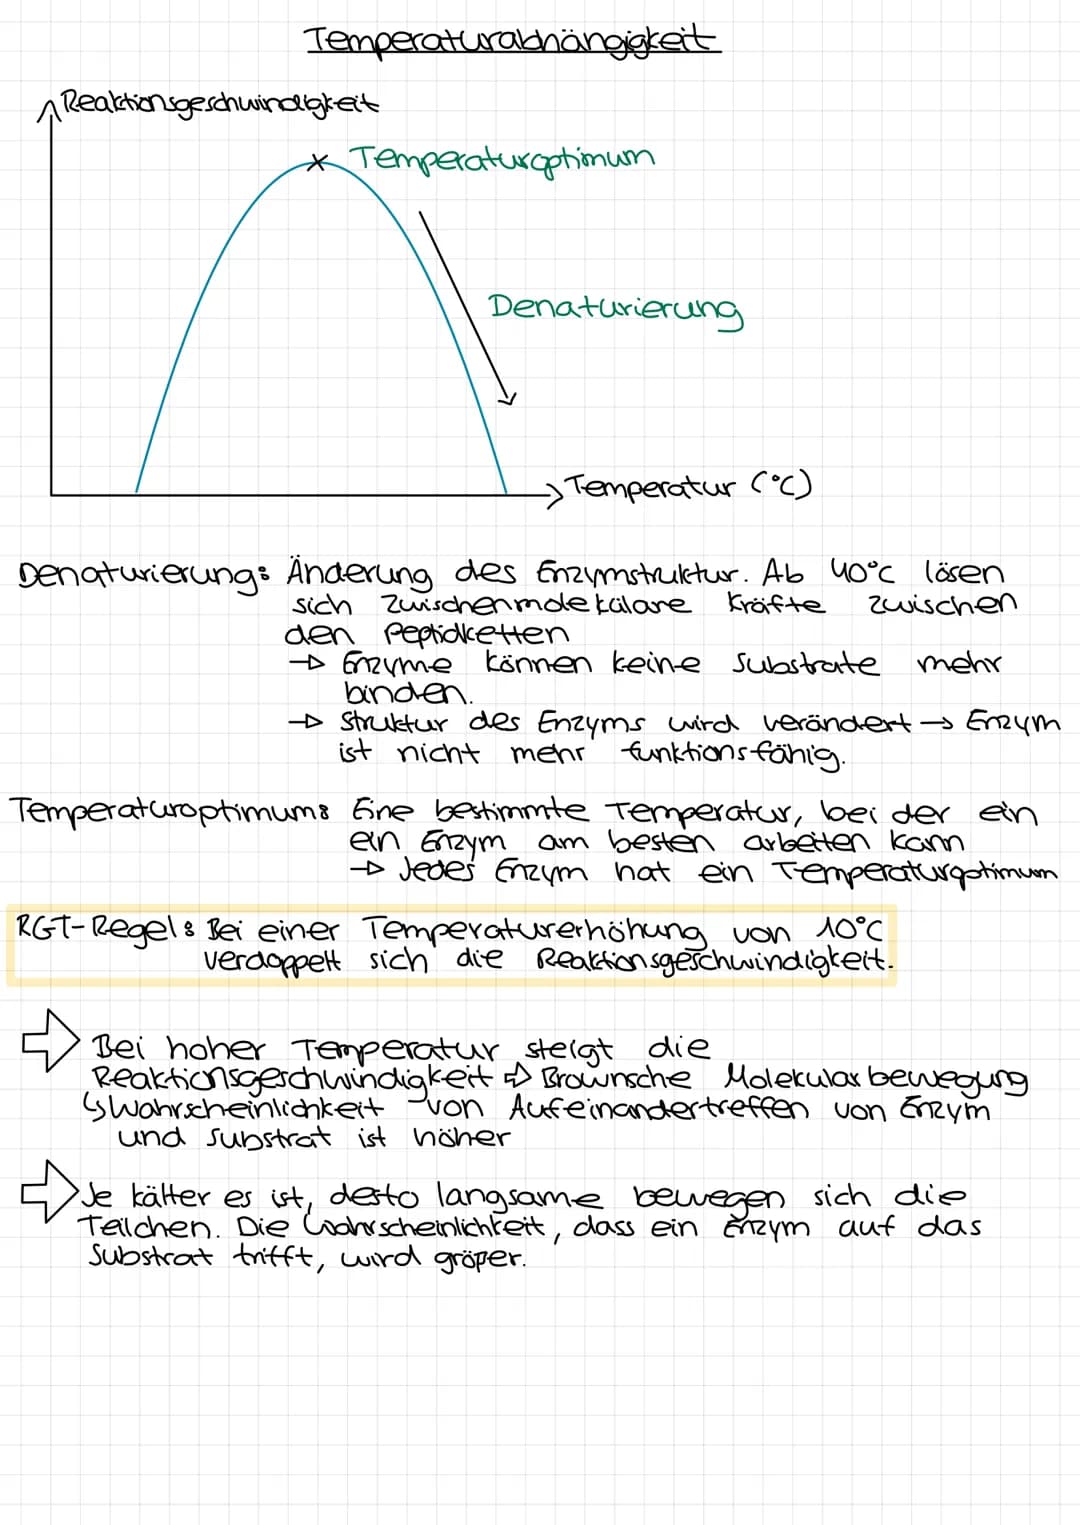 Temperaturabhängigkeit
Reaktionsgeschwindigkeit
Temperaturoptimum
Denaturierung
Temperatur (°C)
Denaturierung: Änderung des Enzymstruktur. Ab 40°C lösen
sich Zwischenmolekulare Kräfte zwischen
den Peptidketten
→ Enzyme können keine Substrate mehr
binden.
→ Struktur des Enzyms wird verändert → Enzym
ist nicht mehr funktionsfähig.
Temperaturoptimum: Eine bestimmte Temperatur, bei der ein
ein Enzym am besten arbeiten kann
→ Jedes Enzym hat ein Temperaturoptimum
RGT-Regel: Bei einer Temperaturerhöhung von 10°C
verdoppelt sich die Reaktionsgeschwindigkeit.
⇒ Bei hoher Temperatur steigt die
Reaktionsgeschwindigkeit ⇒ Brownsche Molekularbewegung
↳ Wahrscheinlichkeit von Aufeinandertreffen von Enzym
und Substrat ist höher
⇒ Je kälter es ist, desto langsame bewegen sich die
Teilchen. Die Wahrscheinlichkeit, dass ein Enzym auf das
Substrat trifft, wird größer.